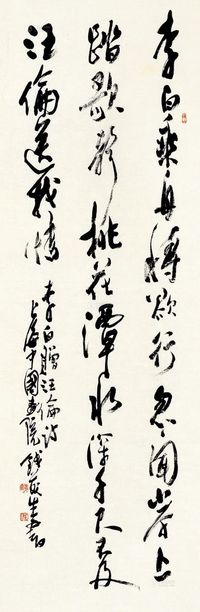 李白乘舟将欲行忽闻岸上
踏歌声桃花潭水深千尺不及
汪倫送我情
李白贈汪倫詩
上海中國畫院錢